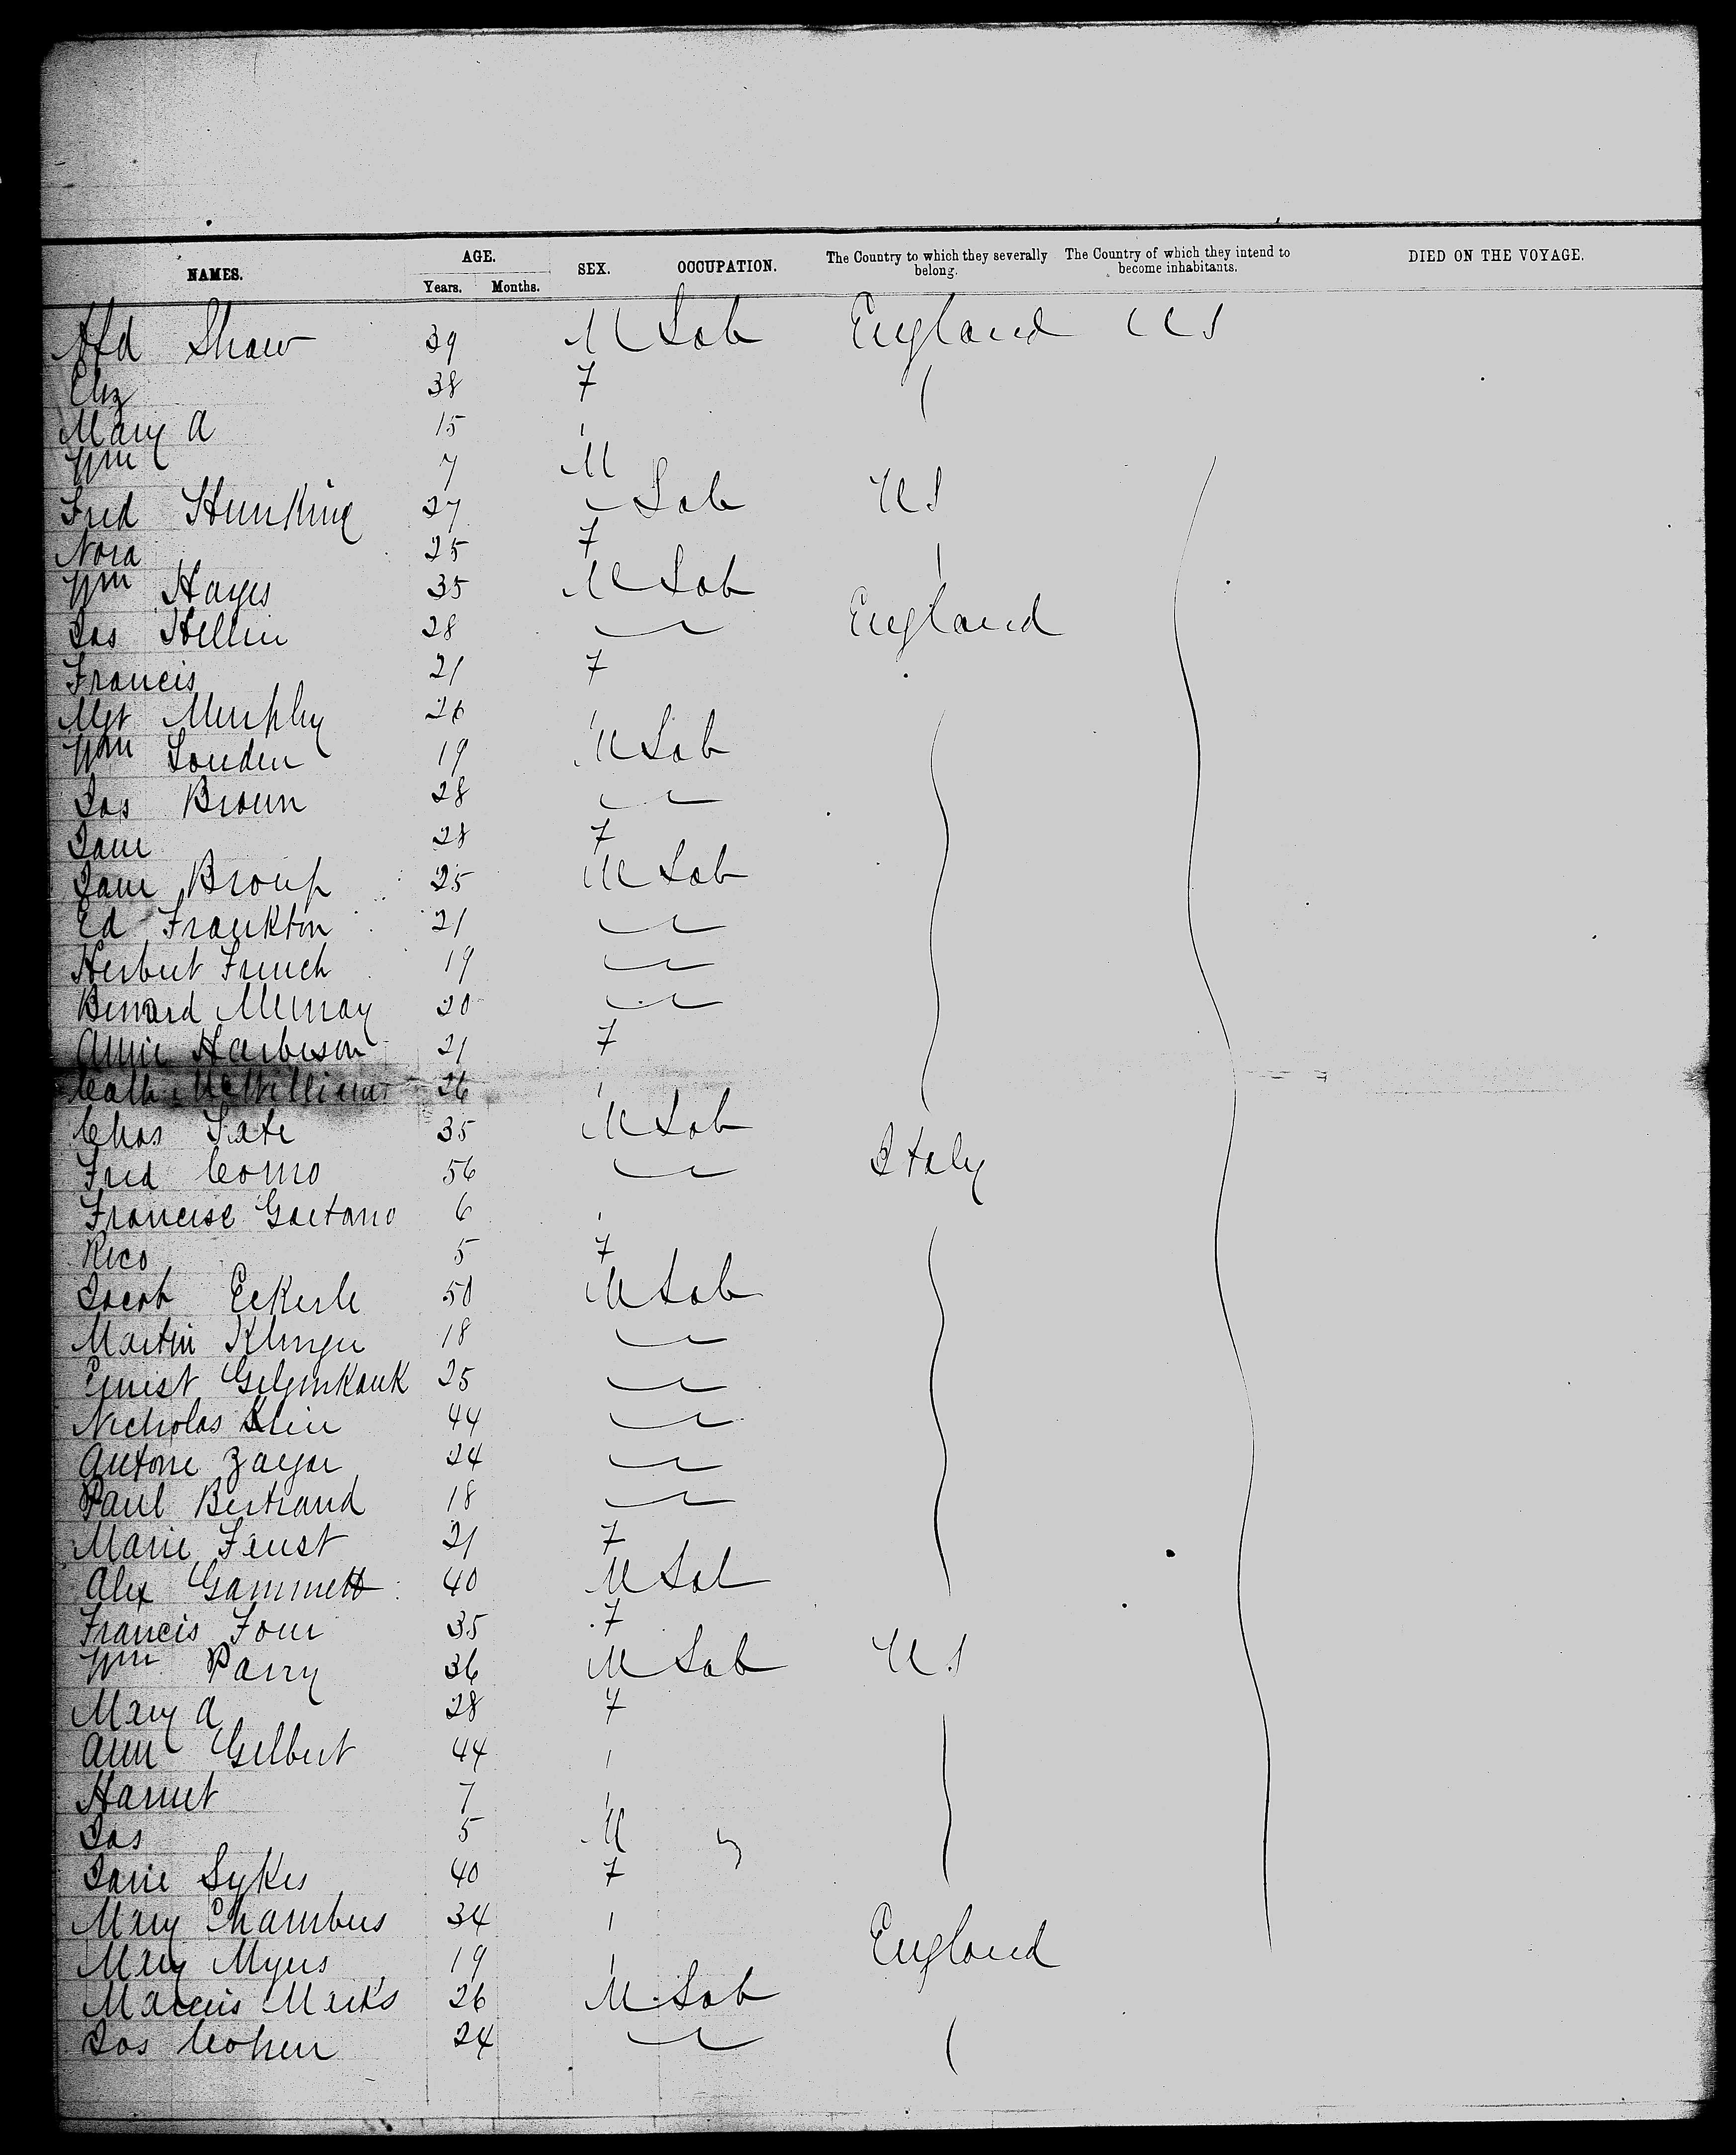 NAMES. AGE. Years. Months. SEX. OCCUPATION. The Country to which they severally belong. The Country of which they intend to become inhabitants. DIED ON THE VOYAGE.
Alfd Shaw 39 M Lab England US
Eliz 38 F
Mary A 15
Wm 7 M
Fred 27 Lab US
Nora 25 F
Wm Hayes 35 M Lab
Jas 28 England
Francis 21 F
Mgt Murphy 26
Wm Louden 19 M Lab
Jas Brown 28
Jane 28 F
25 M Lab
Ed Frankton 21
Herbert French 19
Bernard Murray 20
Annie Harbison 21 F
Cath McWilliams 26
Chas Tate 35 M Lab
Fred Como 56 Italy
Francise Gaetano 6
Rico 5 F
Jacob Eckerle 50 M Lab
Martin Klinger 18
Ernist 25
Nicholas Klein 44
Antone 24
Paul Bertrand 18
Marie Feust 21 F
Alex Gammett 40 M Lab
Francis 35 F
Wm Parry 36 M Lab US
Mary A 28 F
Ann Gilbert 44
Harriet 7
Jas 5 M
Jane Sykes 40 F
Mary Chambers 34
Mary Myers 19 England
Marcus Marks 26 M Lab
Jos Cohen 24